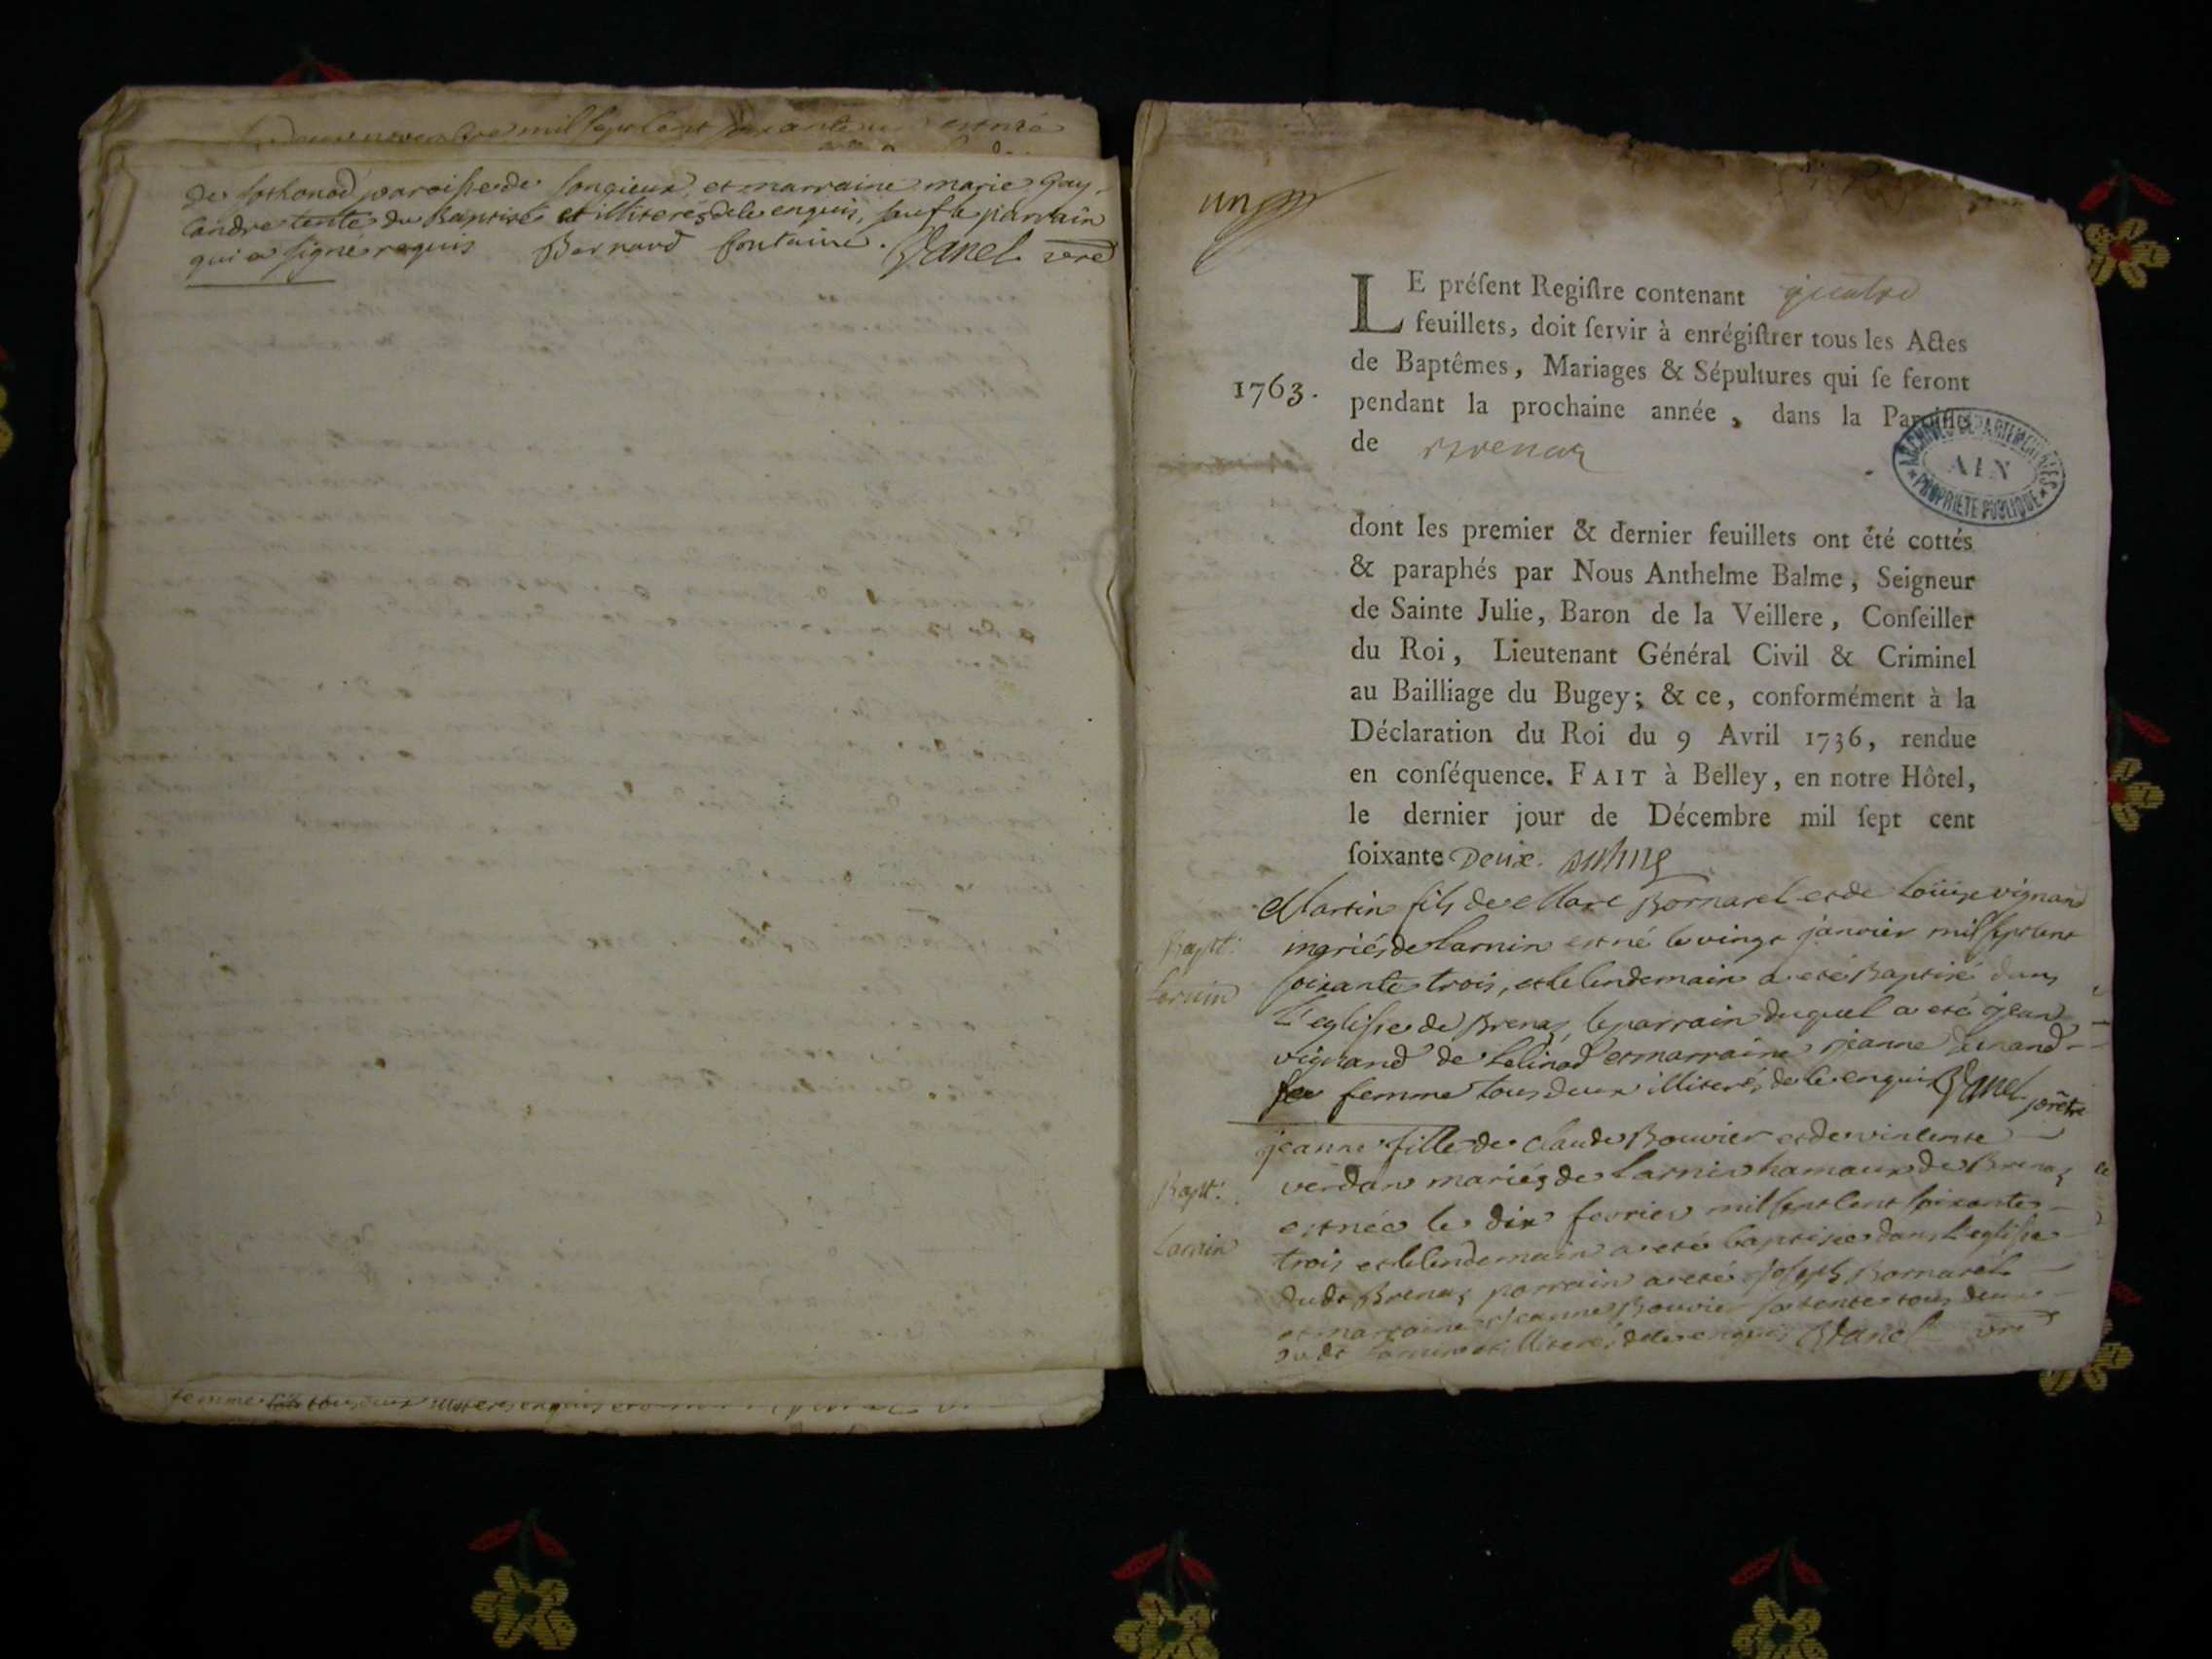 de sothonod paroisse de songieux, et marraine marie Gay,
landre tente du Baptisé et illiterés de le enquis, sauf le parrain
qui a signé requis Bernard fontaine. Vanel
un
LE préſent Regiſtre contenant quatre
feuillets, doit ſervir à enrégiſtrer tous les Actes
de Baptêmes, Mariages & Sépultures qui ſe feront
1763. pendant la prochaine année, dans la Paroiſſe
de Brenaz
ARCHIVES DÉPARTEMENTALES
AIN
PROPRIÉTÉ PUBLIQUE
dont les premier & dernier feuillets ont été cottés
& paraphés par Nous Anthelme Balme, Seigneur
de Sainte Julie, Baron de la Veillere, Conſeiller
du Roi, Lieutenant Général Civil & Criminel
au Bailliage du Bugey; & ce, conformément à la
Déclaration du Roi du 9 Avril 1736, rendue
en conſéquence. FAIT à Belley, en notre Hôtel,
le dernier jour de Décembre mil ſept cent
ſoixante Deux.
Martin fils de Marc Bornarel et de Loüise vignand
Bapt. mariés de Larnin est né le vingt janvier mil sept cent
Larnin soixante trois, et le lendemain a eté Baptisé dans
L'eglise de Brenaz, le parrain duquel a eté jean
vignand de et marraine jeanne
sa femme tous deux illiterés de le enquis Vanel prêtre
jeanne fille de Claude Bouvier et de vincente
Bapt. verdan mariés de Larnin hamaux de Brenaz
est née le dix fevrier mil sept cent soixante
Larnin trois et le lendemain a eté baptisée dans L'eglise
dudt Brenaz parrain a eté joseph Bornarel
et marraine jeanne Bouvier sa tente tous deux
dudt Larnin et illiterés de le enquis Vanel